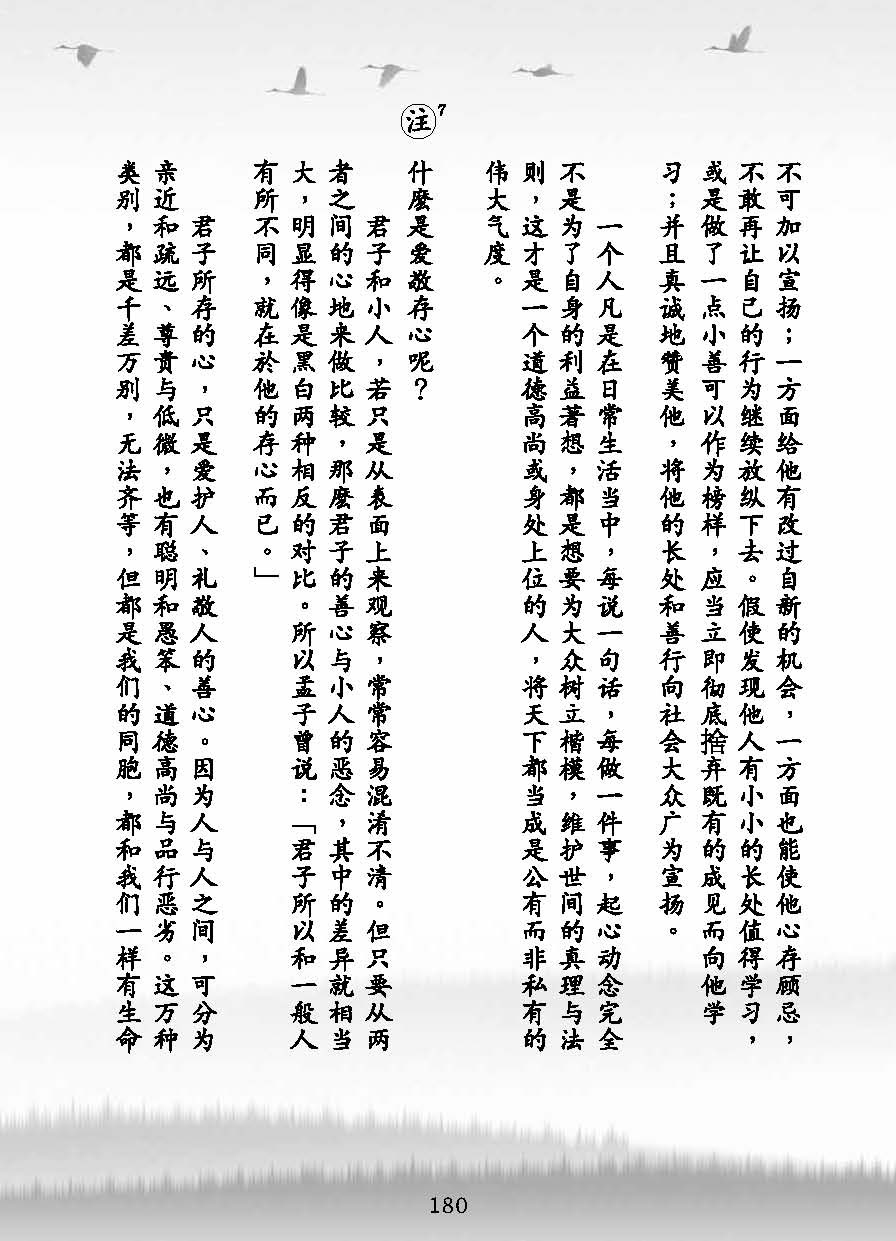 不可加以宣扬；一方面给他有改过自新的机会，一方面也能使他心存顾忌，
不敢再让自己的行为继续放纵下去。假使发现他人有小小的长处值得学习，
或是做了一点小善可以作为榜样，应当立即彻底捨弃既有的成见而向他学
习；并且真诚地赞美他，将他的长处和善行向社会大众广为宣扬。
一个人凡是在日常生活当中，每说一句话，每做一件事，起心动念完全
不是为了自身的利益著想，都是想要为大众树立楷模，维护世间的真理与法
则，这才是一个道德高尚或身处上位的人，将天下都当成是公有而非私有的
伟大气度。
注7
什麽是爱敬存心呢？
君子和小人，若只是从表面上来观察，常常容易混淆不清。但只要从两
者之间的心地来做比较，那麽君子的善心与小人的恶念，其中的差异就相当
大，明显得像是黑白两种相反的对比。所以孟子曾说：「君子所以和一般人
有所不同，就在於他的存心而已。」
君子所存的心，只是爱护人、礼敬人的善心。因为人与人之间，可分为
亲近和疏远、尊贵与低微，也有聪明和愚笨、道德高尚与品行恶劣。这万种
类别，都是千差万别，无法齐等，但都是我们的同胞，都和我们一样有生命
180